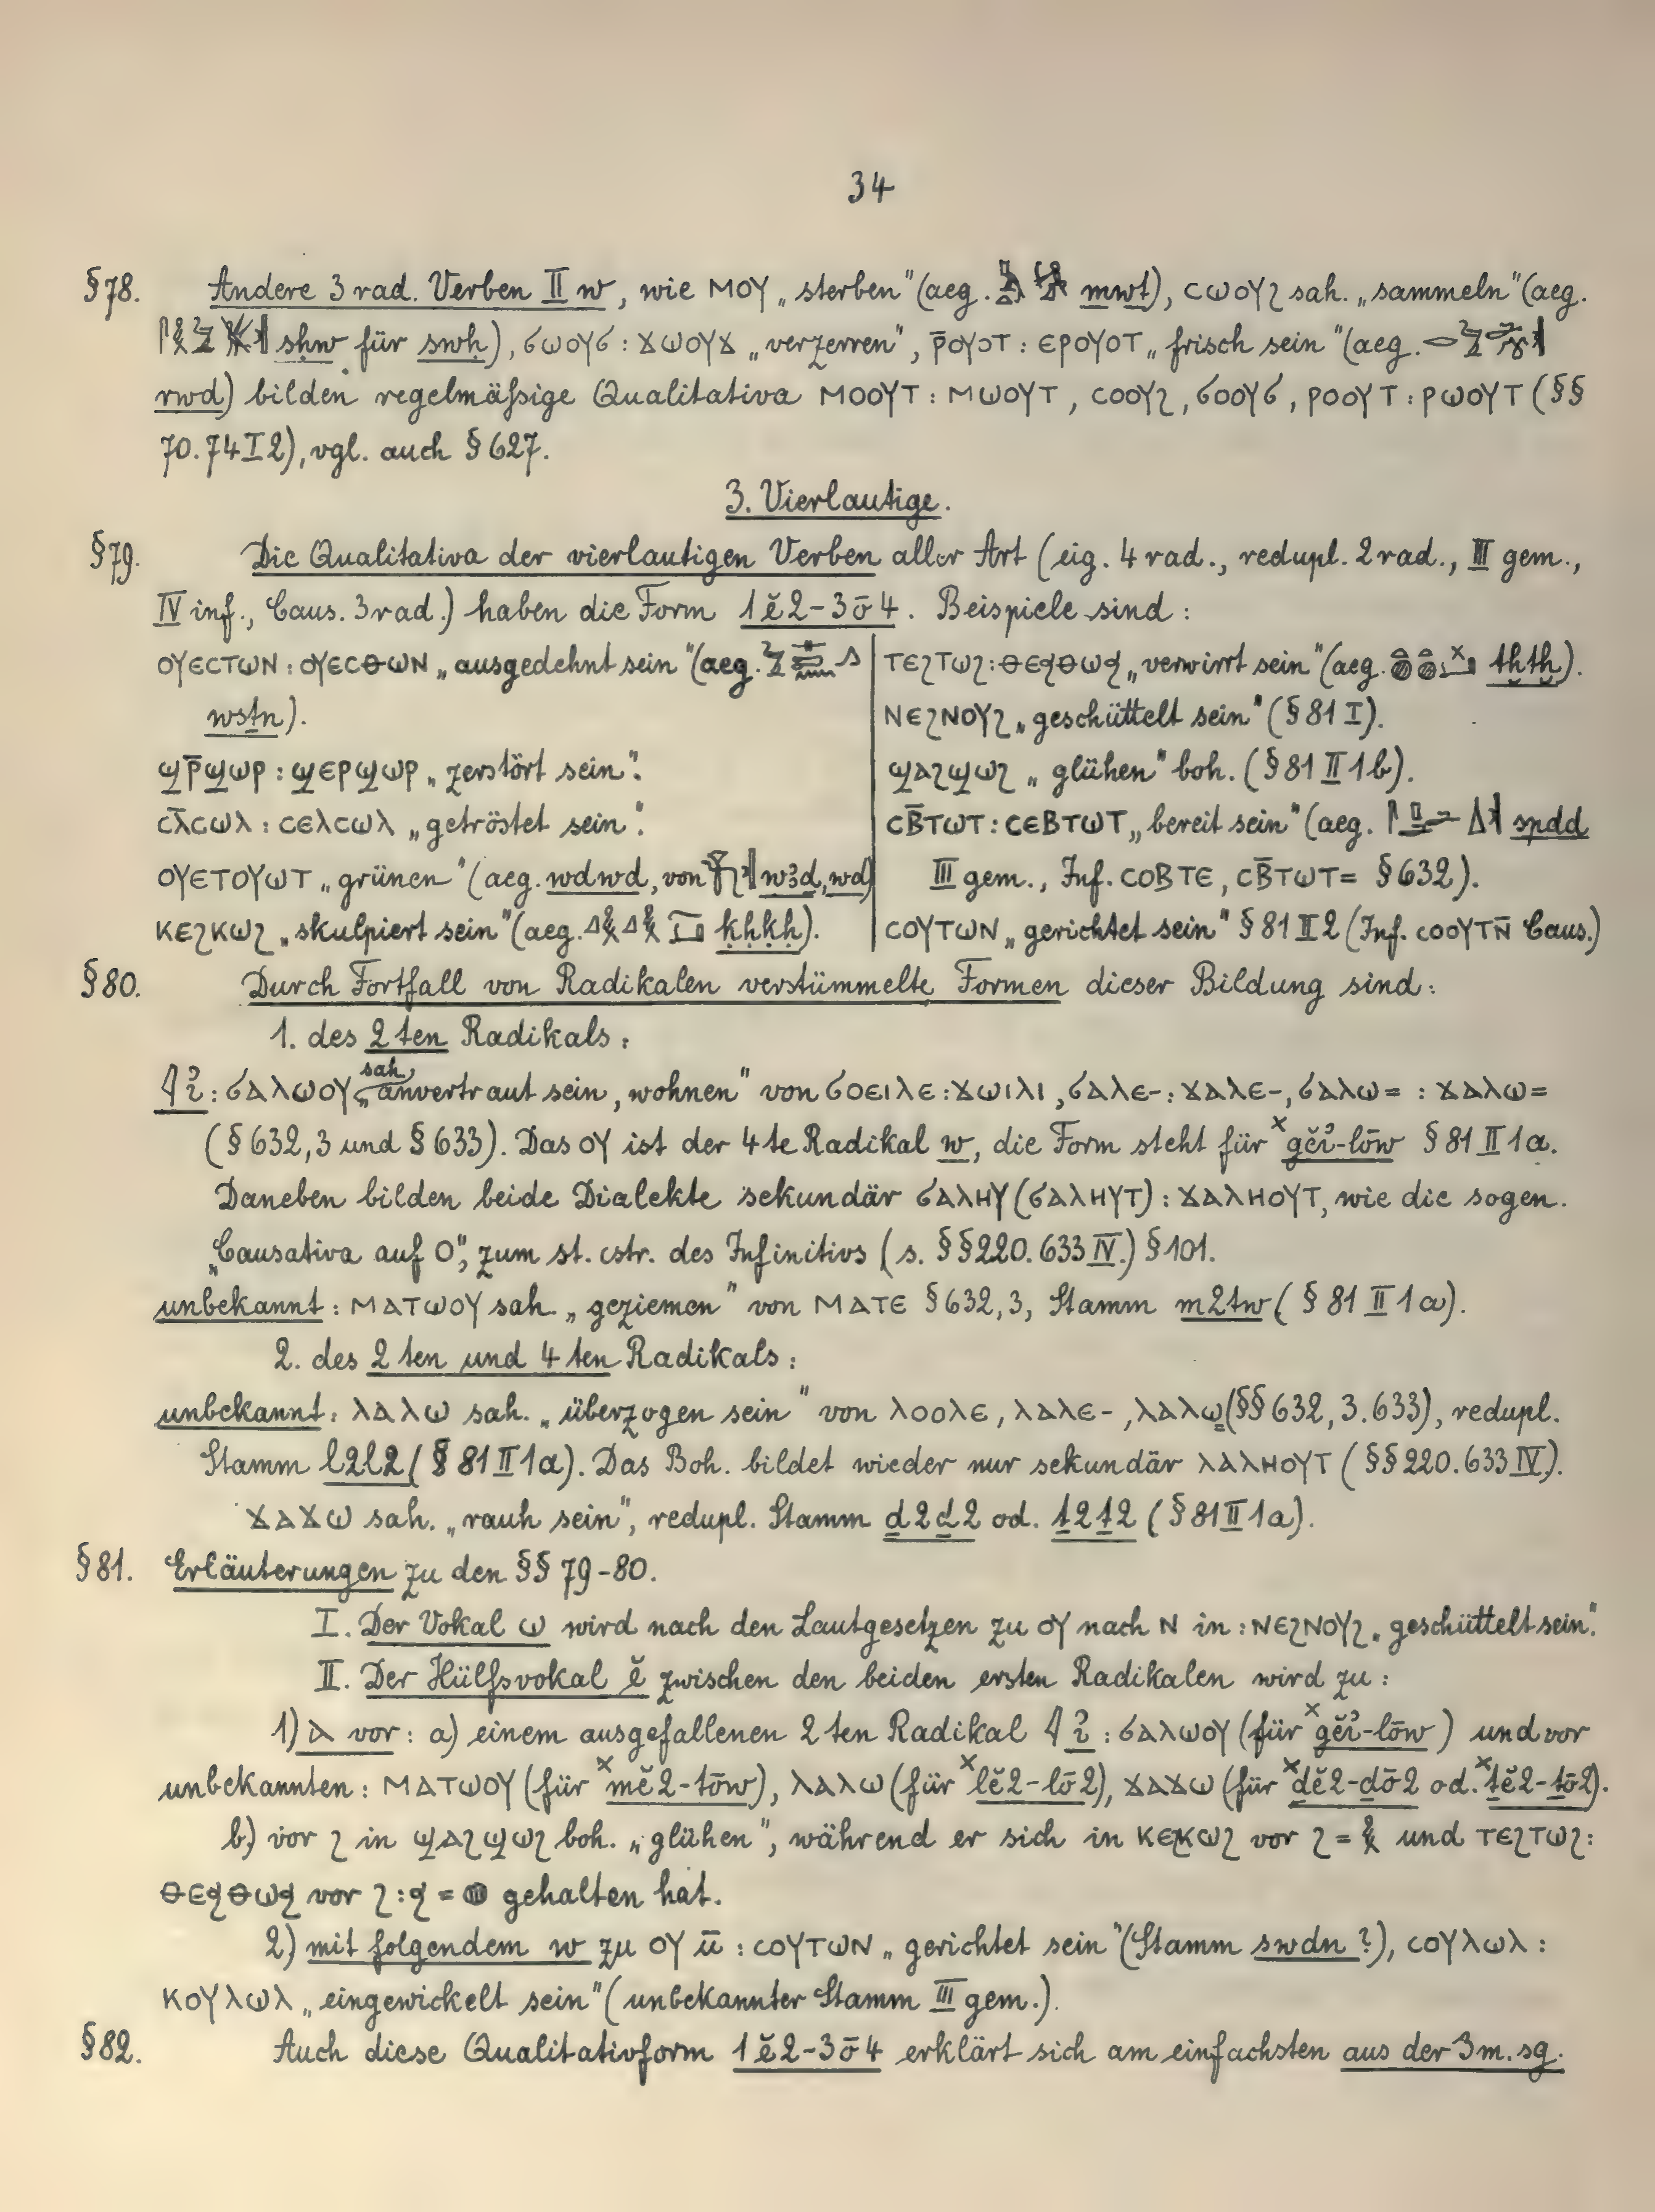 34
§78. Andere 3rad. Verben II w, wie ⲙⲟⲩ „sterben" (aeg. mwt), ⲥⲱⲟⲩϩ sah. „sammeln" (aeg.
sḥw für swḥ), ϭⲱⲟⲩϭ : ϫⲱⲟⲩϫ „verzerren", ⲣ̄ⲟⲩⲟⲧ : ⲉⲣⲟⲩⲟⲧ „frisch sein" (aeg.
rwd) bilden regelmäßige Qualitativa ⲙⲟⲟⲩⲧ : ⲙⲱⲟⲩⲧ, ⲥⲟⲟⲩϩ, ϭⲟⲟⲩϭ, ⲣⲟⲟⲩⲧ : ⲣⲱⲟⲩⲧ (§§
70. 74 I 2), vgl. auch § 627.
3. Vierlautige.
§79. Die Qualitativa der vierlautigen Verben aller Art (eig. 4rad., redupl. 2rad., III gem.,
IV inf., Caus. 3rad.) haben die Form 1ĕ2-3ō4. Beispiele sind:
ⲟⲩⲉⲥⲧⲱⲛ : ⲟⲩⲉⲥⲑⲱⲛ „ausgedehnt sein" (aeg.
wsṯn).
ϣⲣ̄ϣⲱⲣ : ϣⲉⲣϣⲱⲣ „zerstört sein".
ⲥⲗ̄ⲥⲱⲗ : ⲥⲉⲗⲥⲱⲗ „getröstet sein".
ⲟⲩⲉⲧⲟⲩⲱⲧ „grünen" (aeg. wdwd, von w3d, wd)
ⲕⲉϩⲕⲱϩ „skulpiert sein" (aeg. ḳḥḳḥ).
ⲧⲉϩⲧⲱϩ : ⲑⲉϥⲑⲱϥ „verwirrt sein" (aeg. tḫtḫ).
ⲛⲉϩⲛⲟⲩϩ „geschüttelt sein" (§ 81 I).
ϣⲁϩϣⲱϩ „glühen" boh. (§ 81 II 1b).
ⲥⲃ̄ⲧⲱⲧ : ⲥⲉⲃⲧⲱⲧ „bereit sein" (aeg. spdd
III gem., Inf. ⲥⲟⲃⲧⲉ, ⲥⲃ̄ⲧⲱⲧ= § 632).
ⲥⲟⲩⲧⲱⲛ „gerichtet sein" § 81 II 2 (Inf. ⲥⲟⲟⲩⲧⲛ̄ Caus.)
§80. Durch Fortfall von Radikalen verstümmelte Formen dieser Bildung sind:
1. des 2ten Radikals:
ỉ : ϭⲁⲗⲱⲟⲩ sah. „anvertraut sein, wohnen" von ϭⲟⲉⲓⲗⲉ : ϫⲱⲓⲗⲓ, ϭⲁⲗⲉ- : ϫⲁⲗⲉ-, ϭⲁⲗⲱ= : ϫⲁⲗⲱ=
(§ 632, 3 und § 633). Das ⲟⲩ ist der 4te Radikal w, die Form steht für ˣgĕỉ-lōw § 81 II 1a.
Daneben bilden beide Dialekte sekundär ϭⲁⲗⲏⲩ (ϭⲁⲗⲏⲩⲧ) : ϫⲁⲗⲏⲟⲩⲧ, wie die sogen.
„Causativa auf O", zum st. cstr. des Infinitivs (s. §§ 220. 633 IV.) § 101.
unbekannt : ⲙⲁⲧⲱⲟⲩ sah. „geziemen" von ⲙⲁⲧⲉ § 632, 3, Stamm m2tw (§ 81 II 1a).
2. des 2ten und 4ten Radikals:
unbekannt : ⲗⲁⲗⲱ sah. „überzogen sein" von ⲗⲟⲟⲗⲉ, ⲗⲁⲗⲉ-, ⲗⲁⲗⲱ= (§§ 632, 3. 633), redupl.
Stamm l2l2 (§ 81 II 1a). Das Boh. bildet wieder nur sekundär ⲗⲁⲗⲏⲟⲩⲧ (§§ 220. 633 IV).
ϫⲁϫⲱ sah. „rauh sein", redupl. Stamm ḏ2ḏ2 od. ṯ2ṯ2 (§ 81 II 1a).
§81. Erläuterungen zu den §§ 79-80.
I. Der Vokal ⲱ wird nach den Lautgesetzen zu ⲟⲩ nach ⲛ in : ⲛⲉϩⲛⲟⲩϩ „geschüttelt sein".
II. Der Hülfsvokal ĕ zwischen den beiden ersten Radikalen wird zu:
1) ⲁ vor : a) einem ausgefallenen 2ten Radikal ỉ : ϭⲁⲗⲱⲟⲩ (für ˣgĕỉ-lōw) und vor
unbekannten : ⲙⲁⲧⲱⲟⲩ (für ˣmĕ2-tōw), ⲗⲁⲗⲱ (für ˣlĕ2-lō2), ϫⲁϫⲱ (für ˣḏĕ2-ḏō2 od. ˣṯĕ2-ṯō2).
b) vor ϩ in ϣⲁϩϣⲱϩ boh. „glühen", während er sich in ⲕⲉϩⲕⲱϩ vor ϩ = und ⲧⲉϩⲧⲱϩ :
ⲑⲉϥⲑⲱϥ vor ϩ : ϥ = gehalten hat.
2) mit folgendem w zu ⲟⲩ ū : ⲥⲟⲩⲧⲱⲛ „gerichtet sein" (Stamm swdn?), ⲥⲟⲩⲗⲱⲗ :
ⲕⲟⲩⲗⲱⲗ „eingewickelt sein" (unbekannter Stamm III gem.).
§82. Auch diese Qualitativform 1ĕ2-3ō4 erklärt sich am einfachsten aus der 3m. sg.